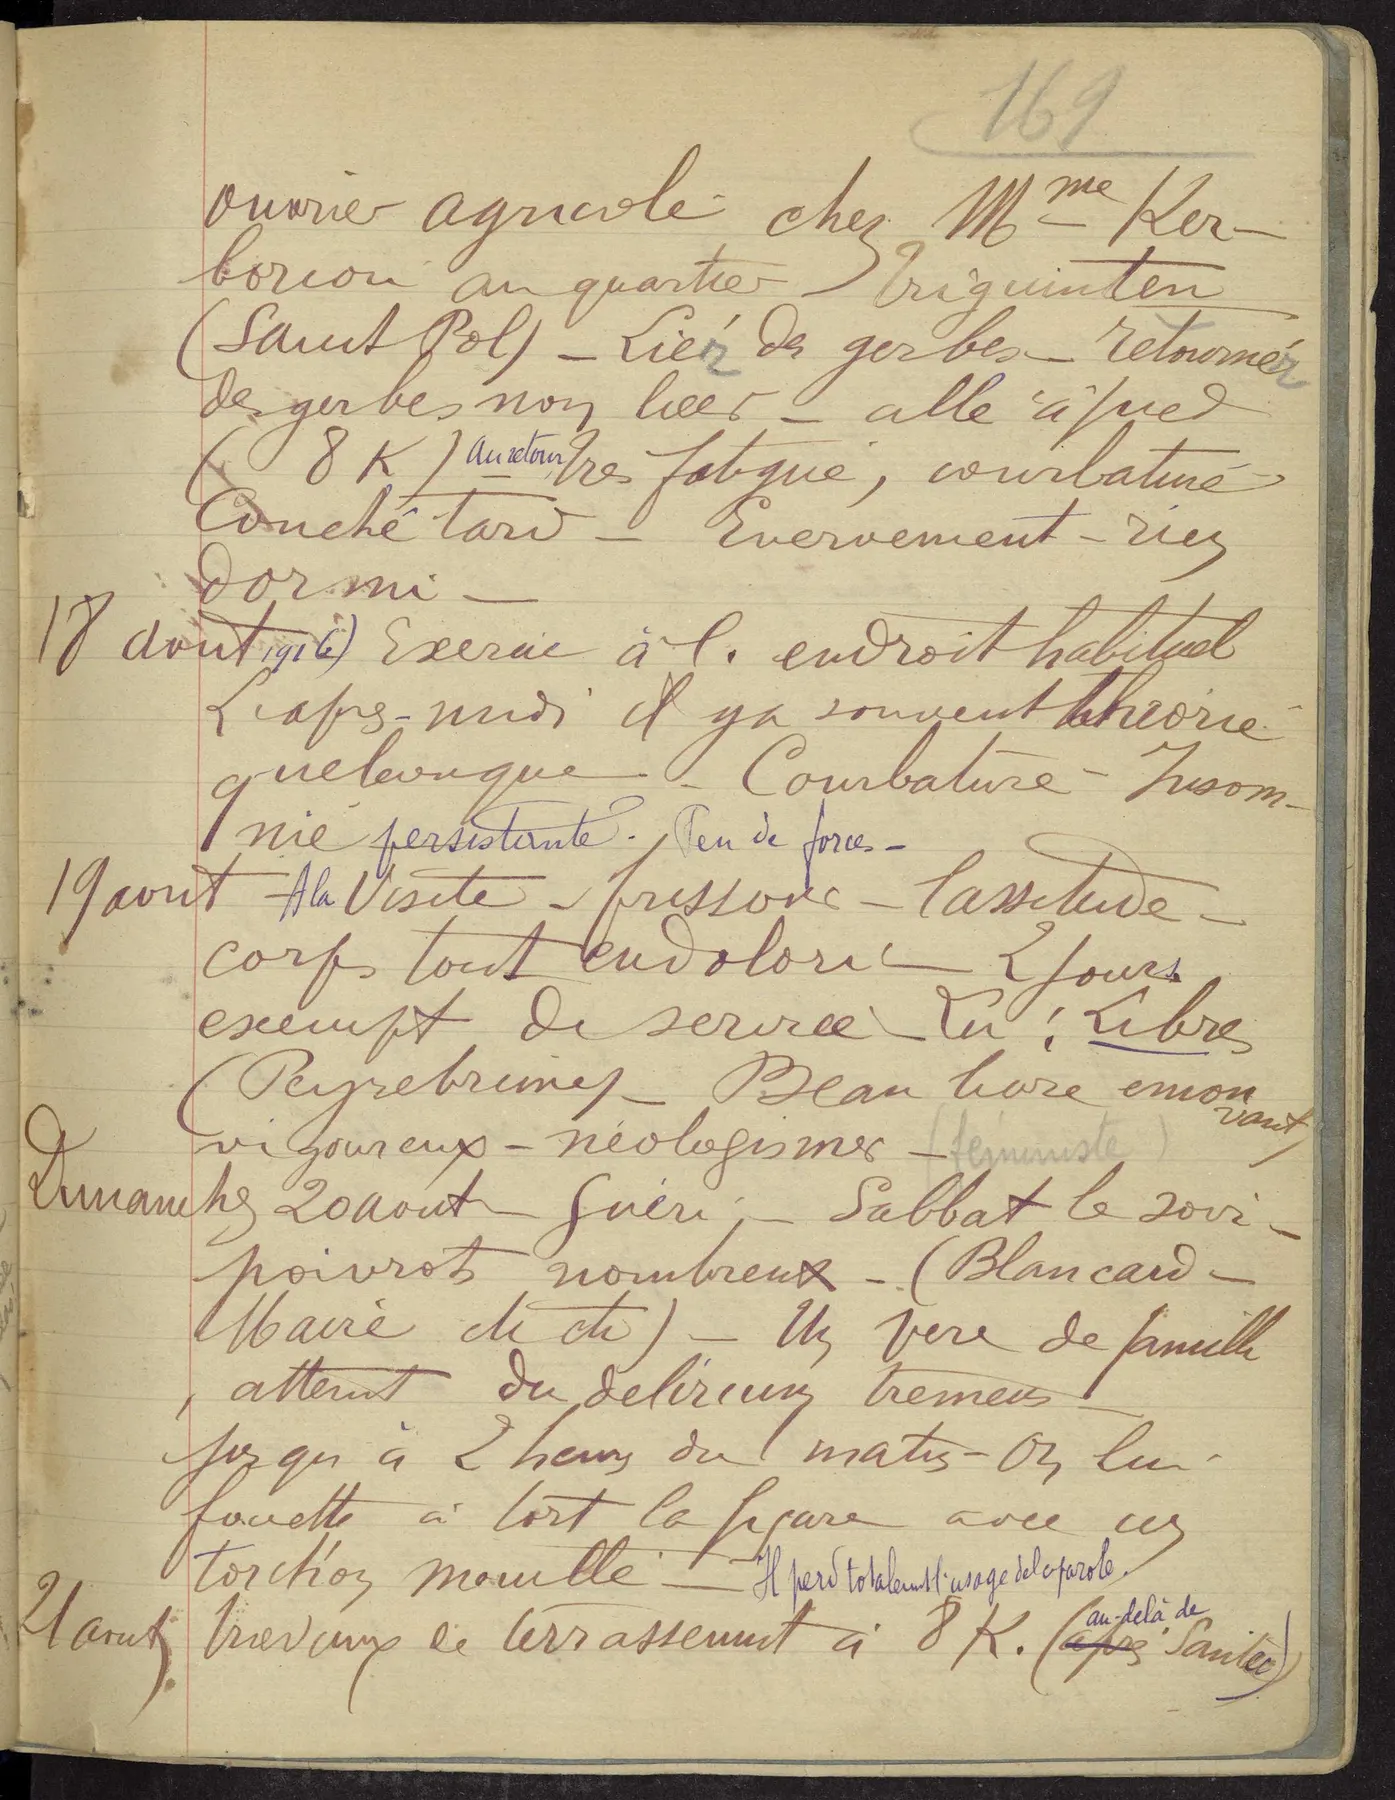 169
ouvrier agricole chez Mme Ker-
boriou au quartier Triguinten
(Saint Pol) – Liér des gerbes – retournér
des gerbes non liées – allé à pied
( 8 K ) au retour très fatigué, courbaturé
Couché tard – Enervement – rien
dormi –
18 août 1916) Exercice à l. endroit habituel
L'après-midi il y a souvent théorie
quelconque – Courbature – Insom-
nie persistante. Peu de forces –
19 août – A la Visite – frissons – lassitude –
corps tout endolori – 2 jours
exempt de service – Lu : Libres
(Peyrebrune) – Beau livre émou
vant,
vigoureux – néologismes – (féministe)
Dimanche 20 août – Guéri – Sabbat le soir –
poivrots nombreux – (Blancard –
Maire ) – Un père de famille
, atteint du delirium tremens –
jusqu'à 2 heures du matin – On lui
fouette à tort la figure avec un
torchon mouillé – Il perd totalement l'usage de la parole.
21 août). Travaux de terrassement à 8 K. (après au-delà de Santec)